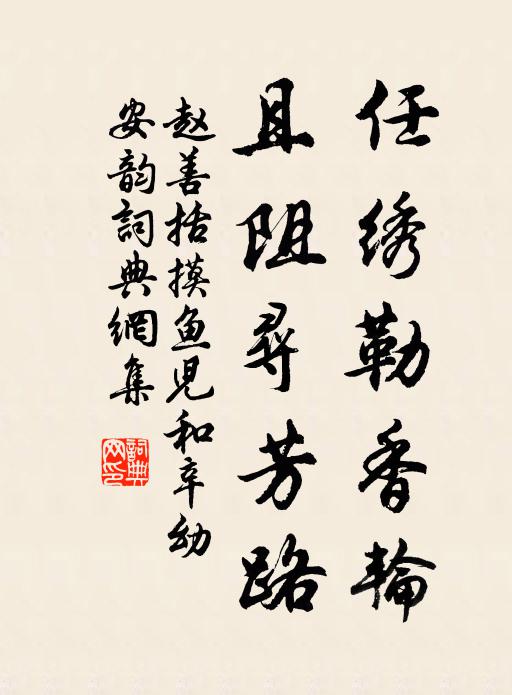 任绣勒香輪
且阻尋芳路
赵善括摸鱼児和辛幼
安韵詞典網集
詞典网印